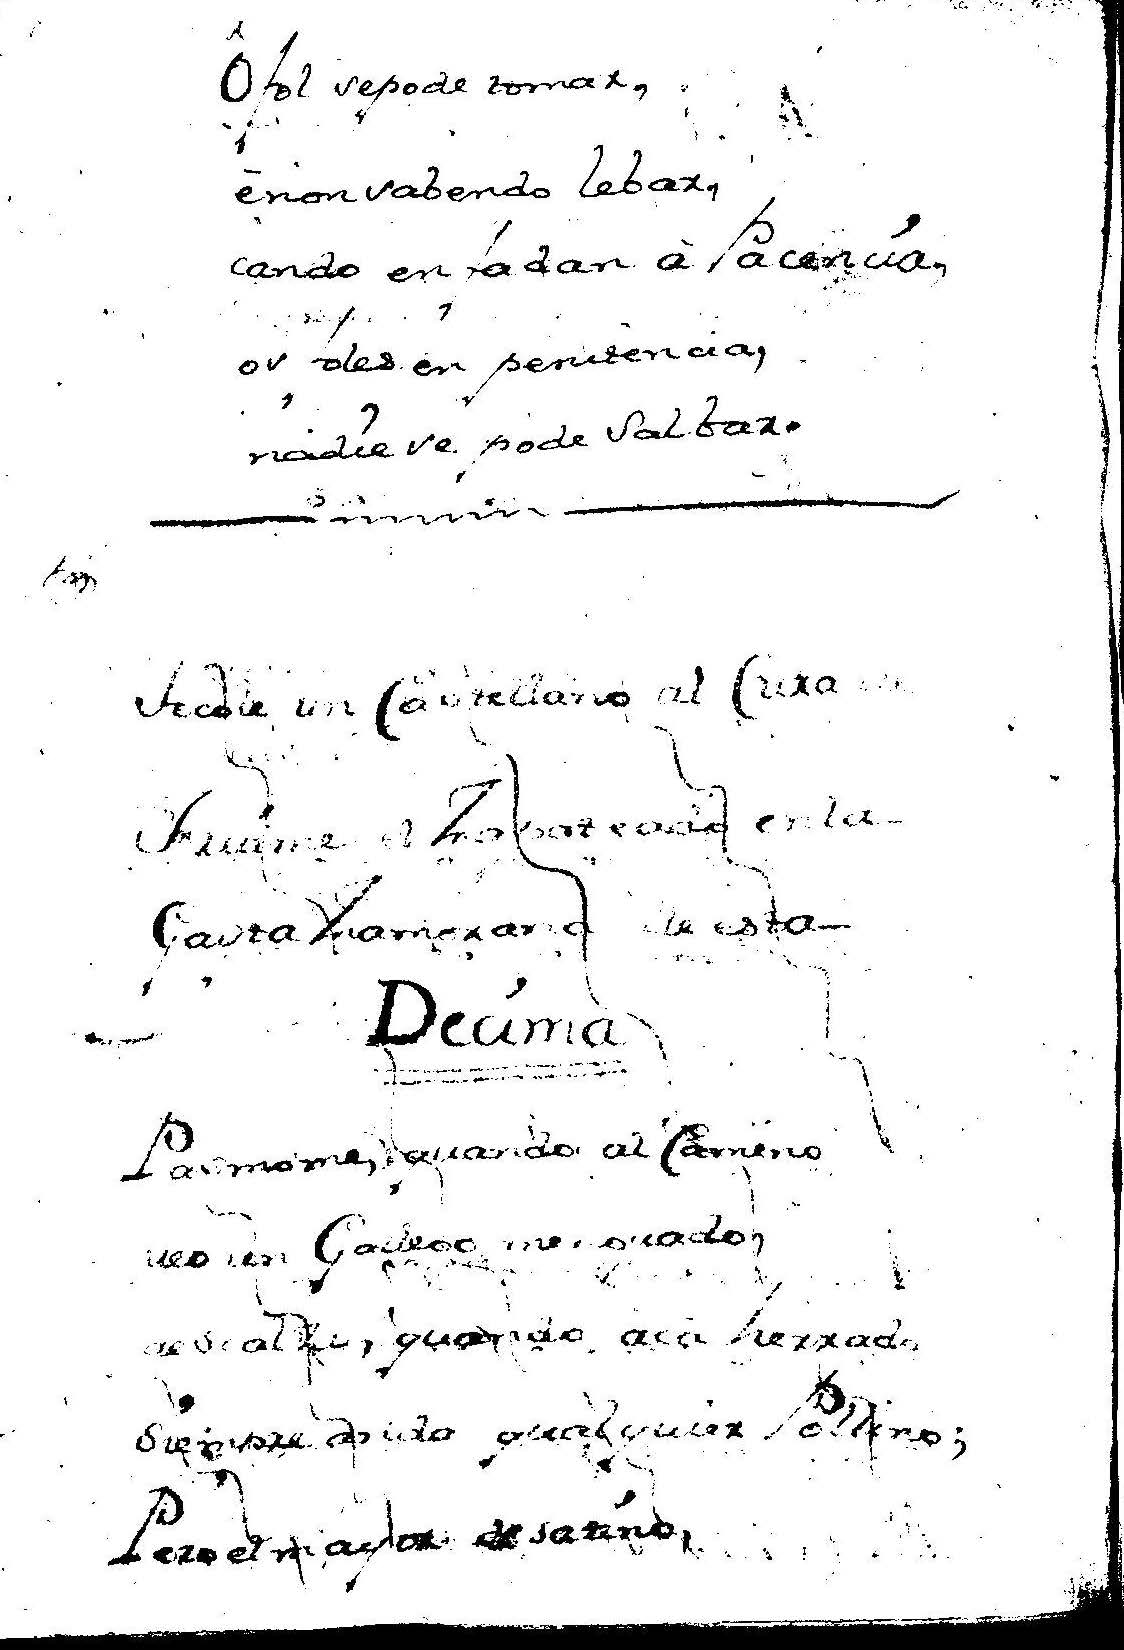 Ô fol sepode tomar,
ênon sabendo lebar,
cando enfadan à Paciencia,
os oles en penitencia,
nadie se pode Salbar.
un Castellano al Cura
Fruime el Zapateado en la
Gasta Zamorana de esta
Decima
Pasmome, quando al Camino
veo un Gallego menguado,
descalzo, quando acà herrado
siempre à ido qualquier Pollino;
Pero el mayor desatino,